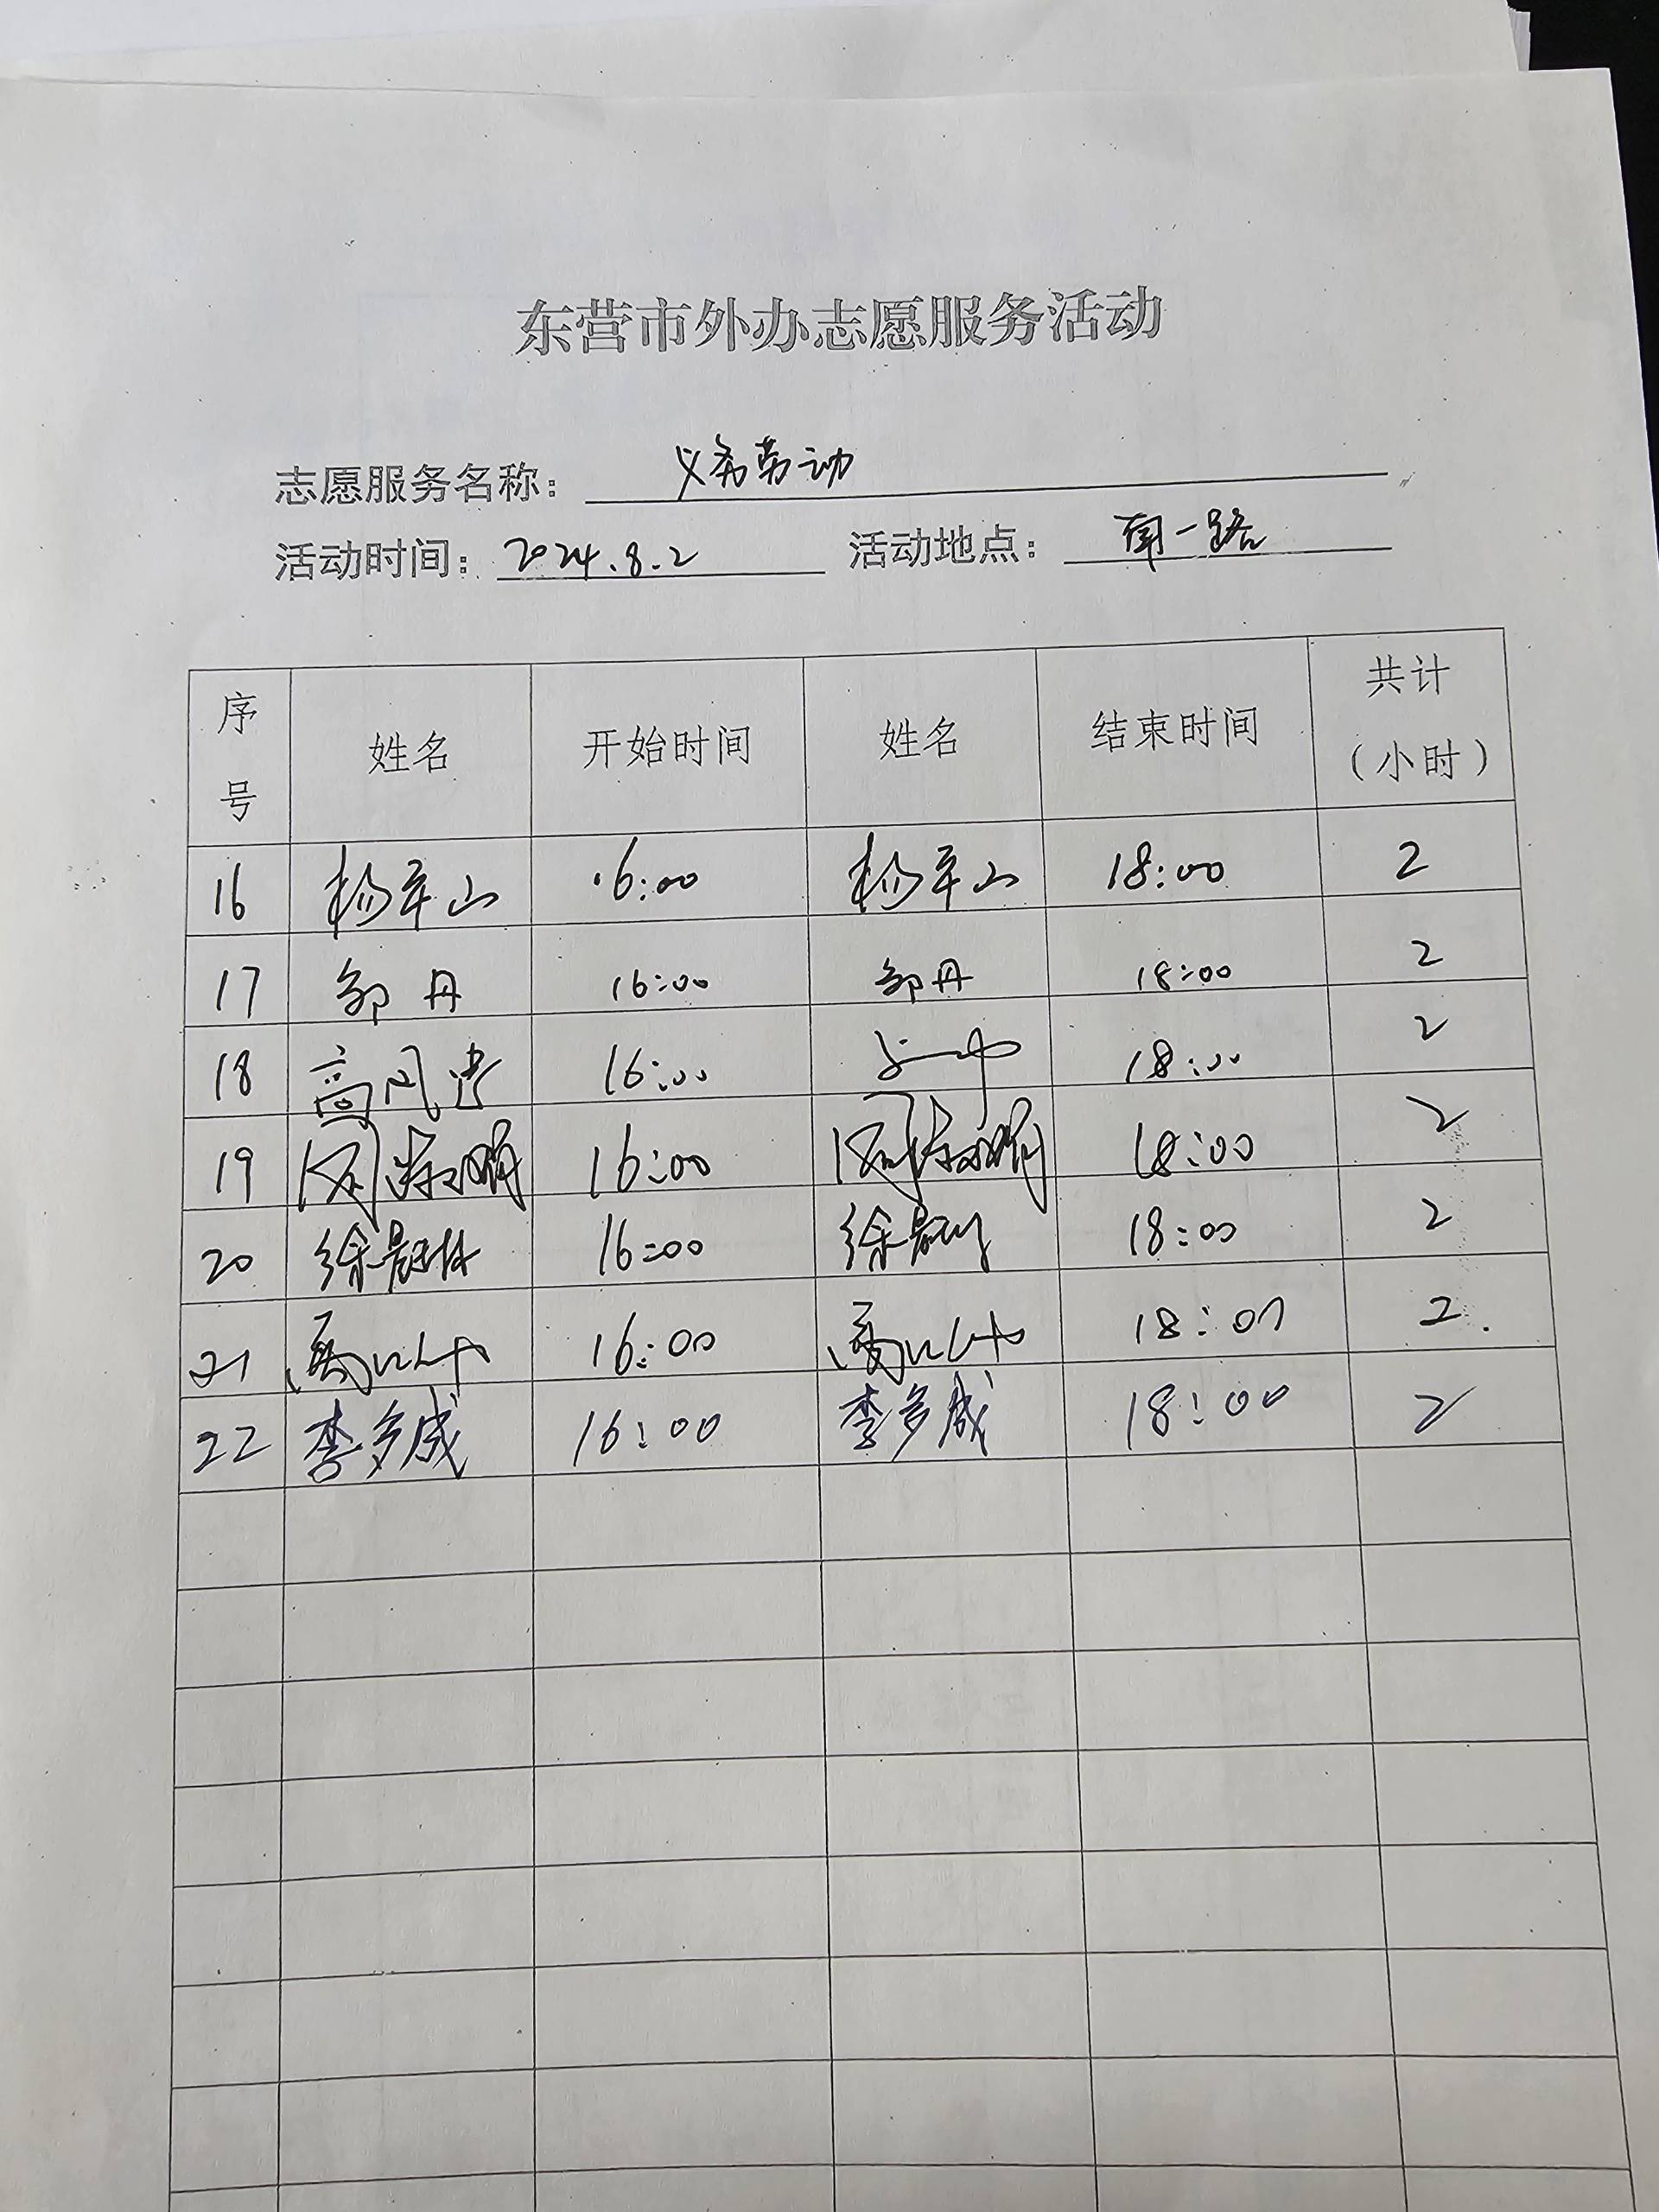 东营市外办志愿服务活动
志愿服务名称： 义务劳动
活动时间： 2024.8.2 活动地点： 南一路
序号 姓名 开始时间 姓名 结束时间 共计（小时）
16 杨军山 16:00 杨军山 18:00 2
17 邹丹 16:00 邹丹 18:00 2
18 高风 16:00 18:00 2
19 16:00 18:00 2
20 徐 16:00 徐 18:00 2
21 16:00 18:00 2
22 李多成 16:00 李多成 18:00 2